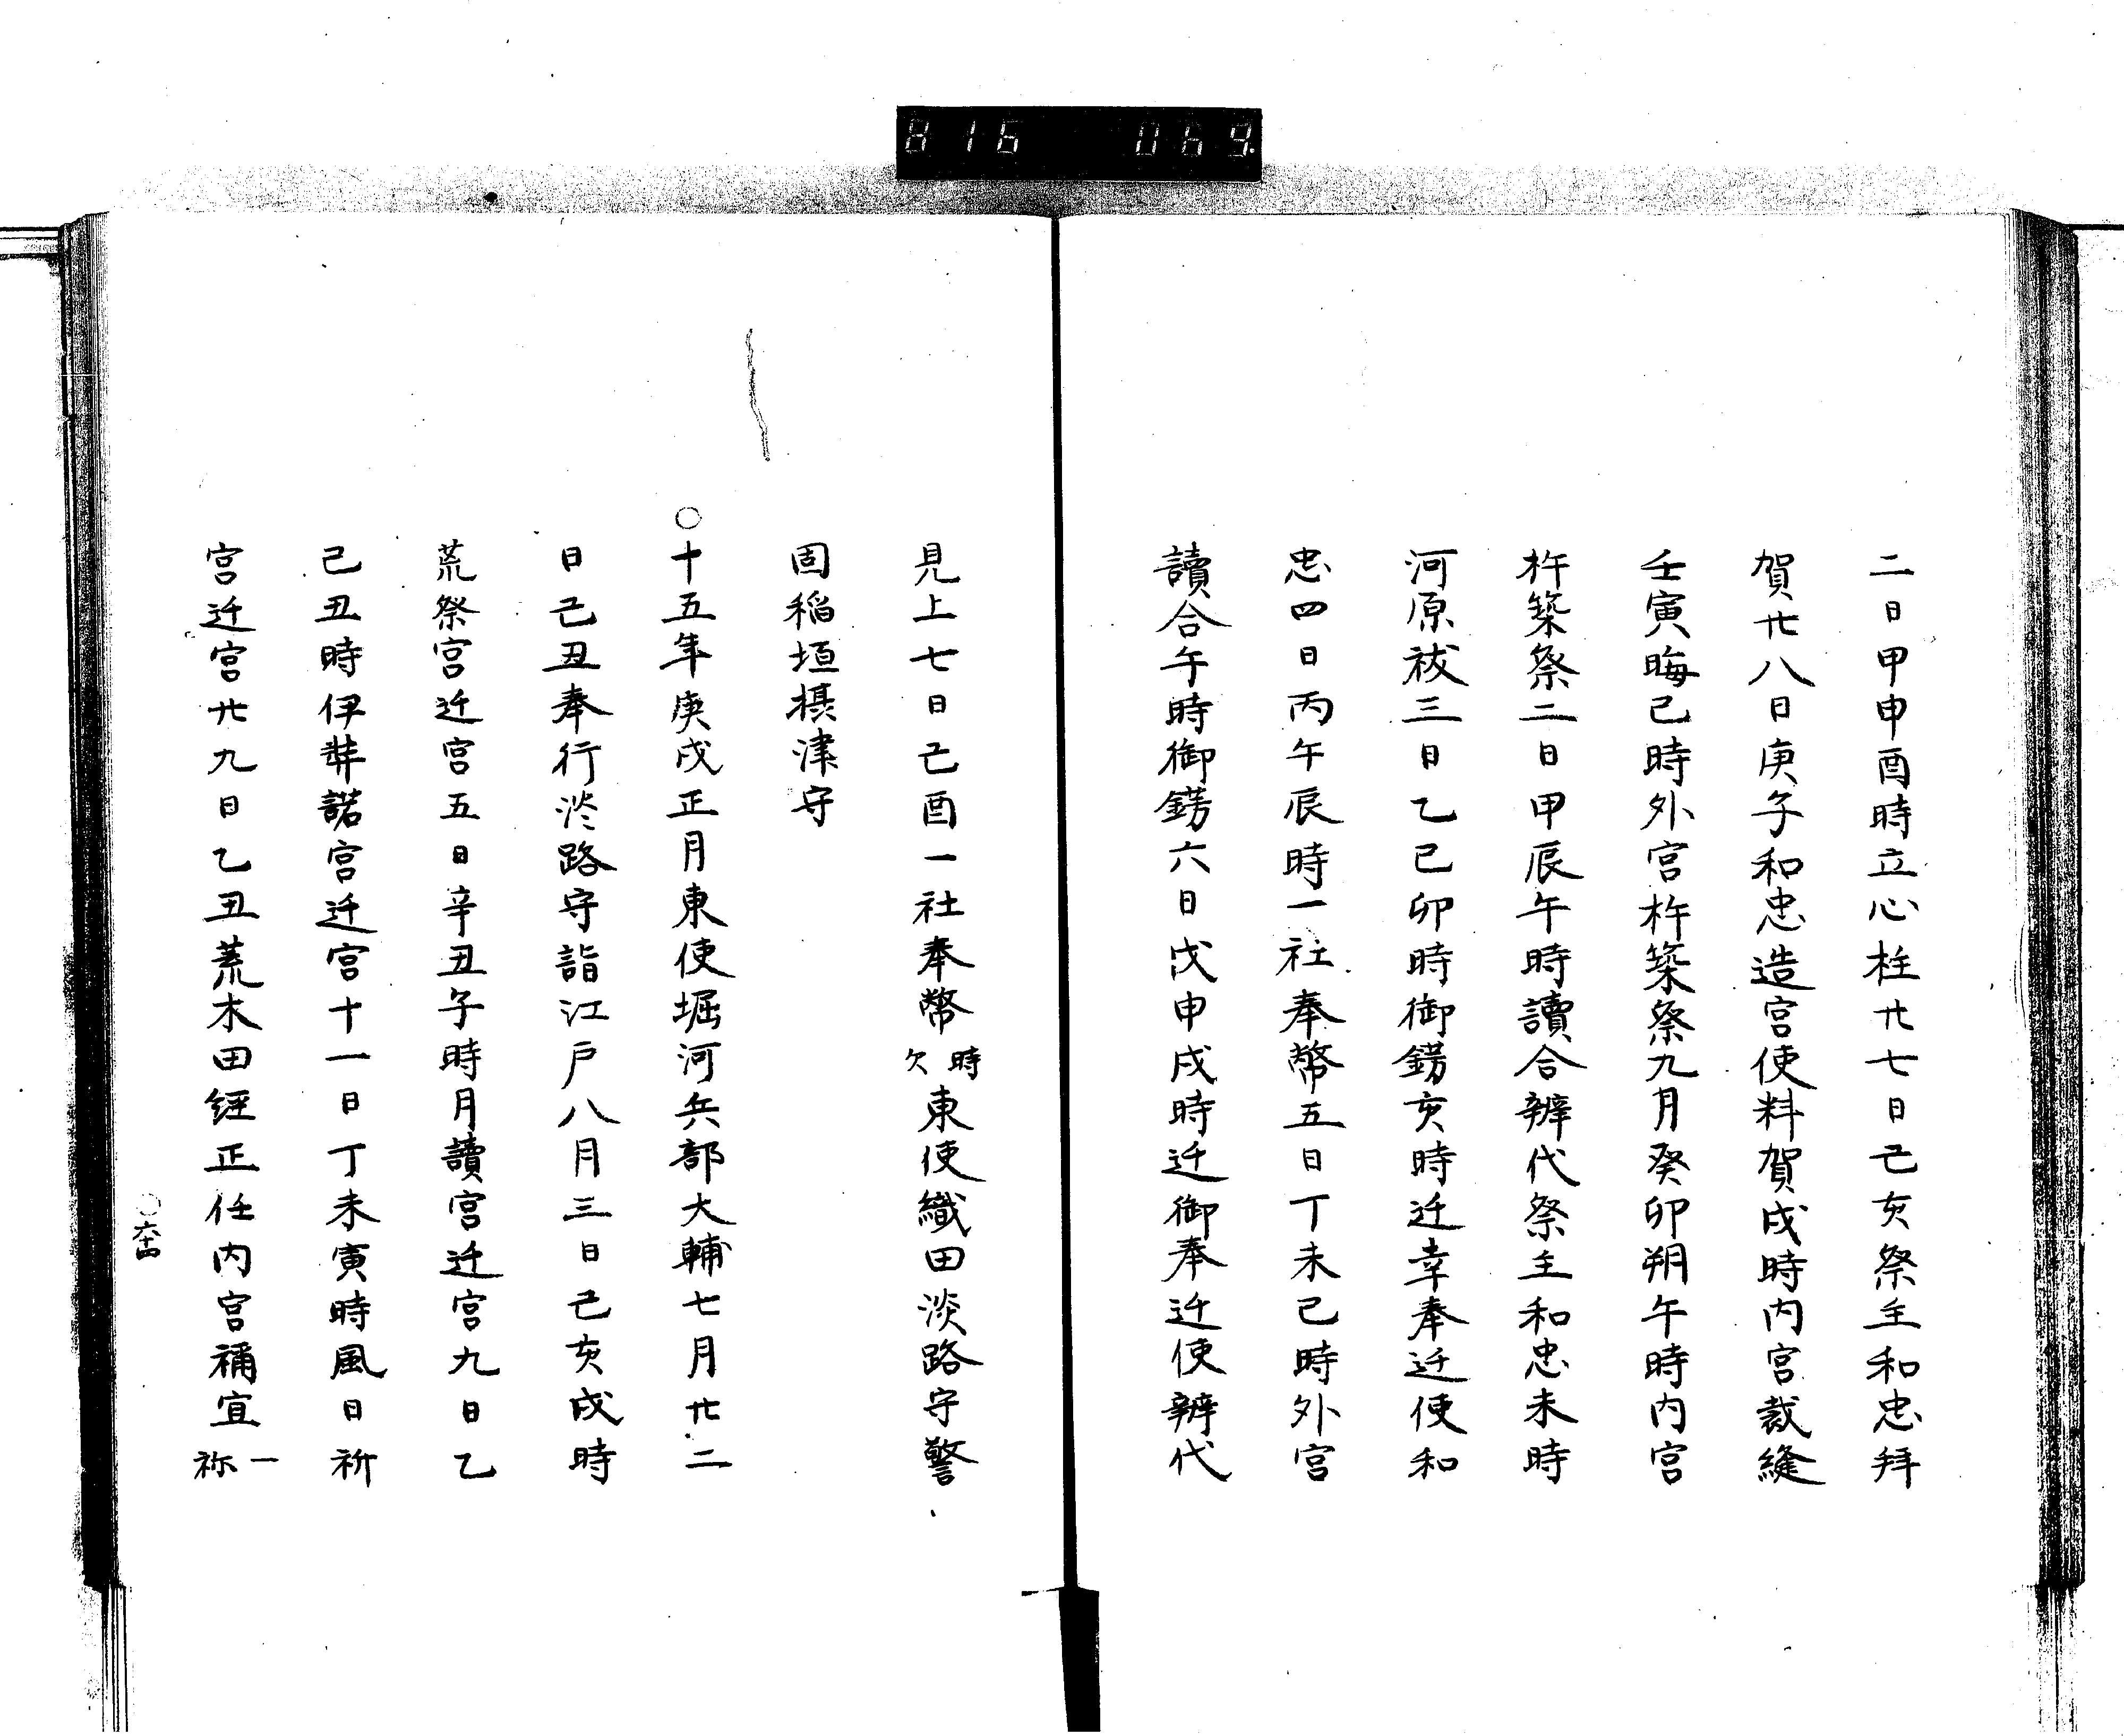 816 069
二日甲申酉時立心柱廿七日己亥祭主和忠拜
賀廿八日庚子和忠造宮使料賀戌時内宮裁縫
壬寅晦己時外宮杵築祭九月癸卯朔午時内宮
杵築祭二日甲辰午時讀合辨代祭主和忠未時
河原祓三日乙巳卯時御錺亥時迁幸奉迁使和
忠四日丙午辰時一社奉幣五日丁未己時外宮
讀合午時御錺六日戊申戌時迁御奉迁使辨代
見上七日己酉一社奉幣時欠東使織田淡路守警
固稲垣摂津守
○十五年庚戌正月東使堀河兵部大輔七月廿二
日己丑奉行淡路守詣江戸八月三日己亥戌時
荒祭宮迁宮五日辛丑子時月讀宮迁宮九日乙
己丑時伊弉諾宮迁宮十一日丁未寅時風日祈
宮迁宮廿九日乙丑荒木田経正任内宮禰宜一祢
○六十四